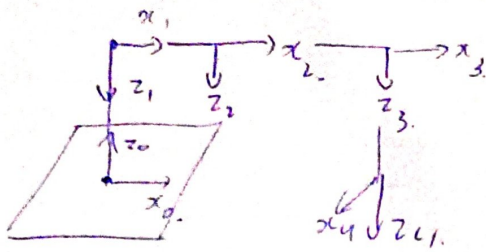 x₁
x₂.
x₃.
z₁
z₂
z₃.
z₀
x₀.
x₄
z₄.